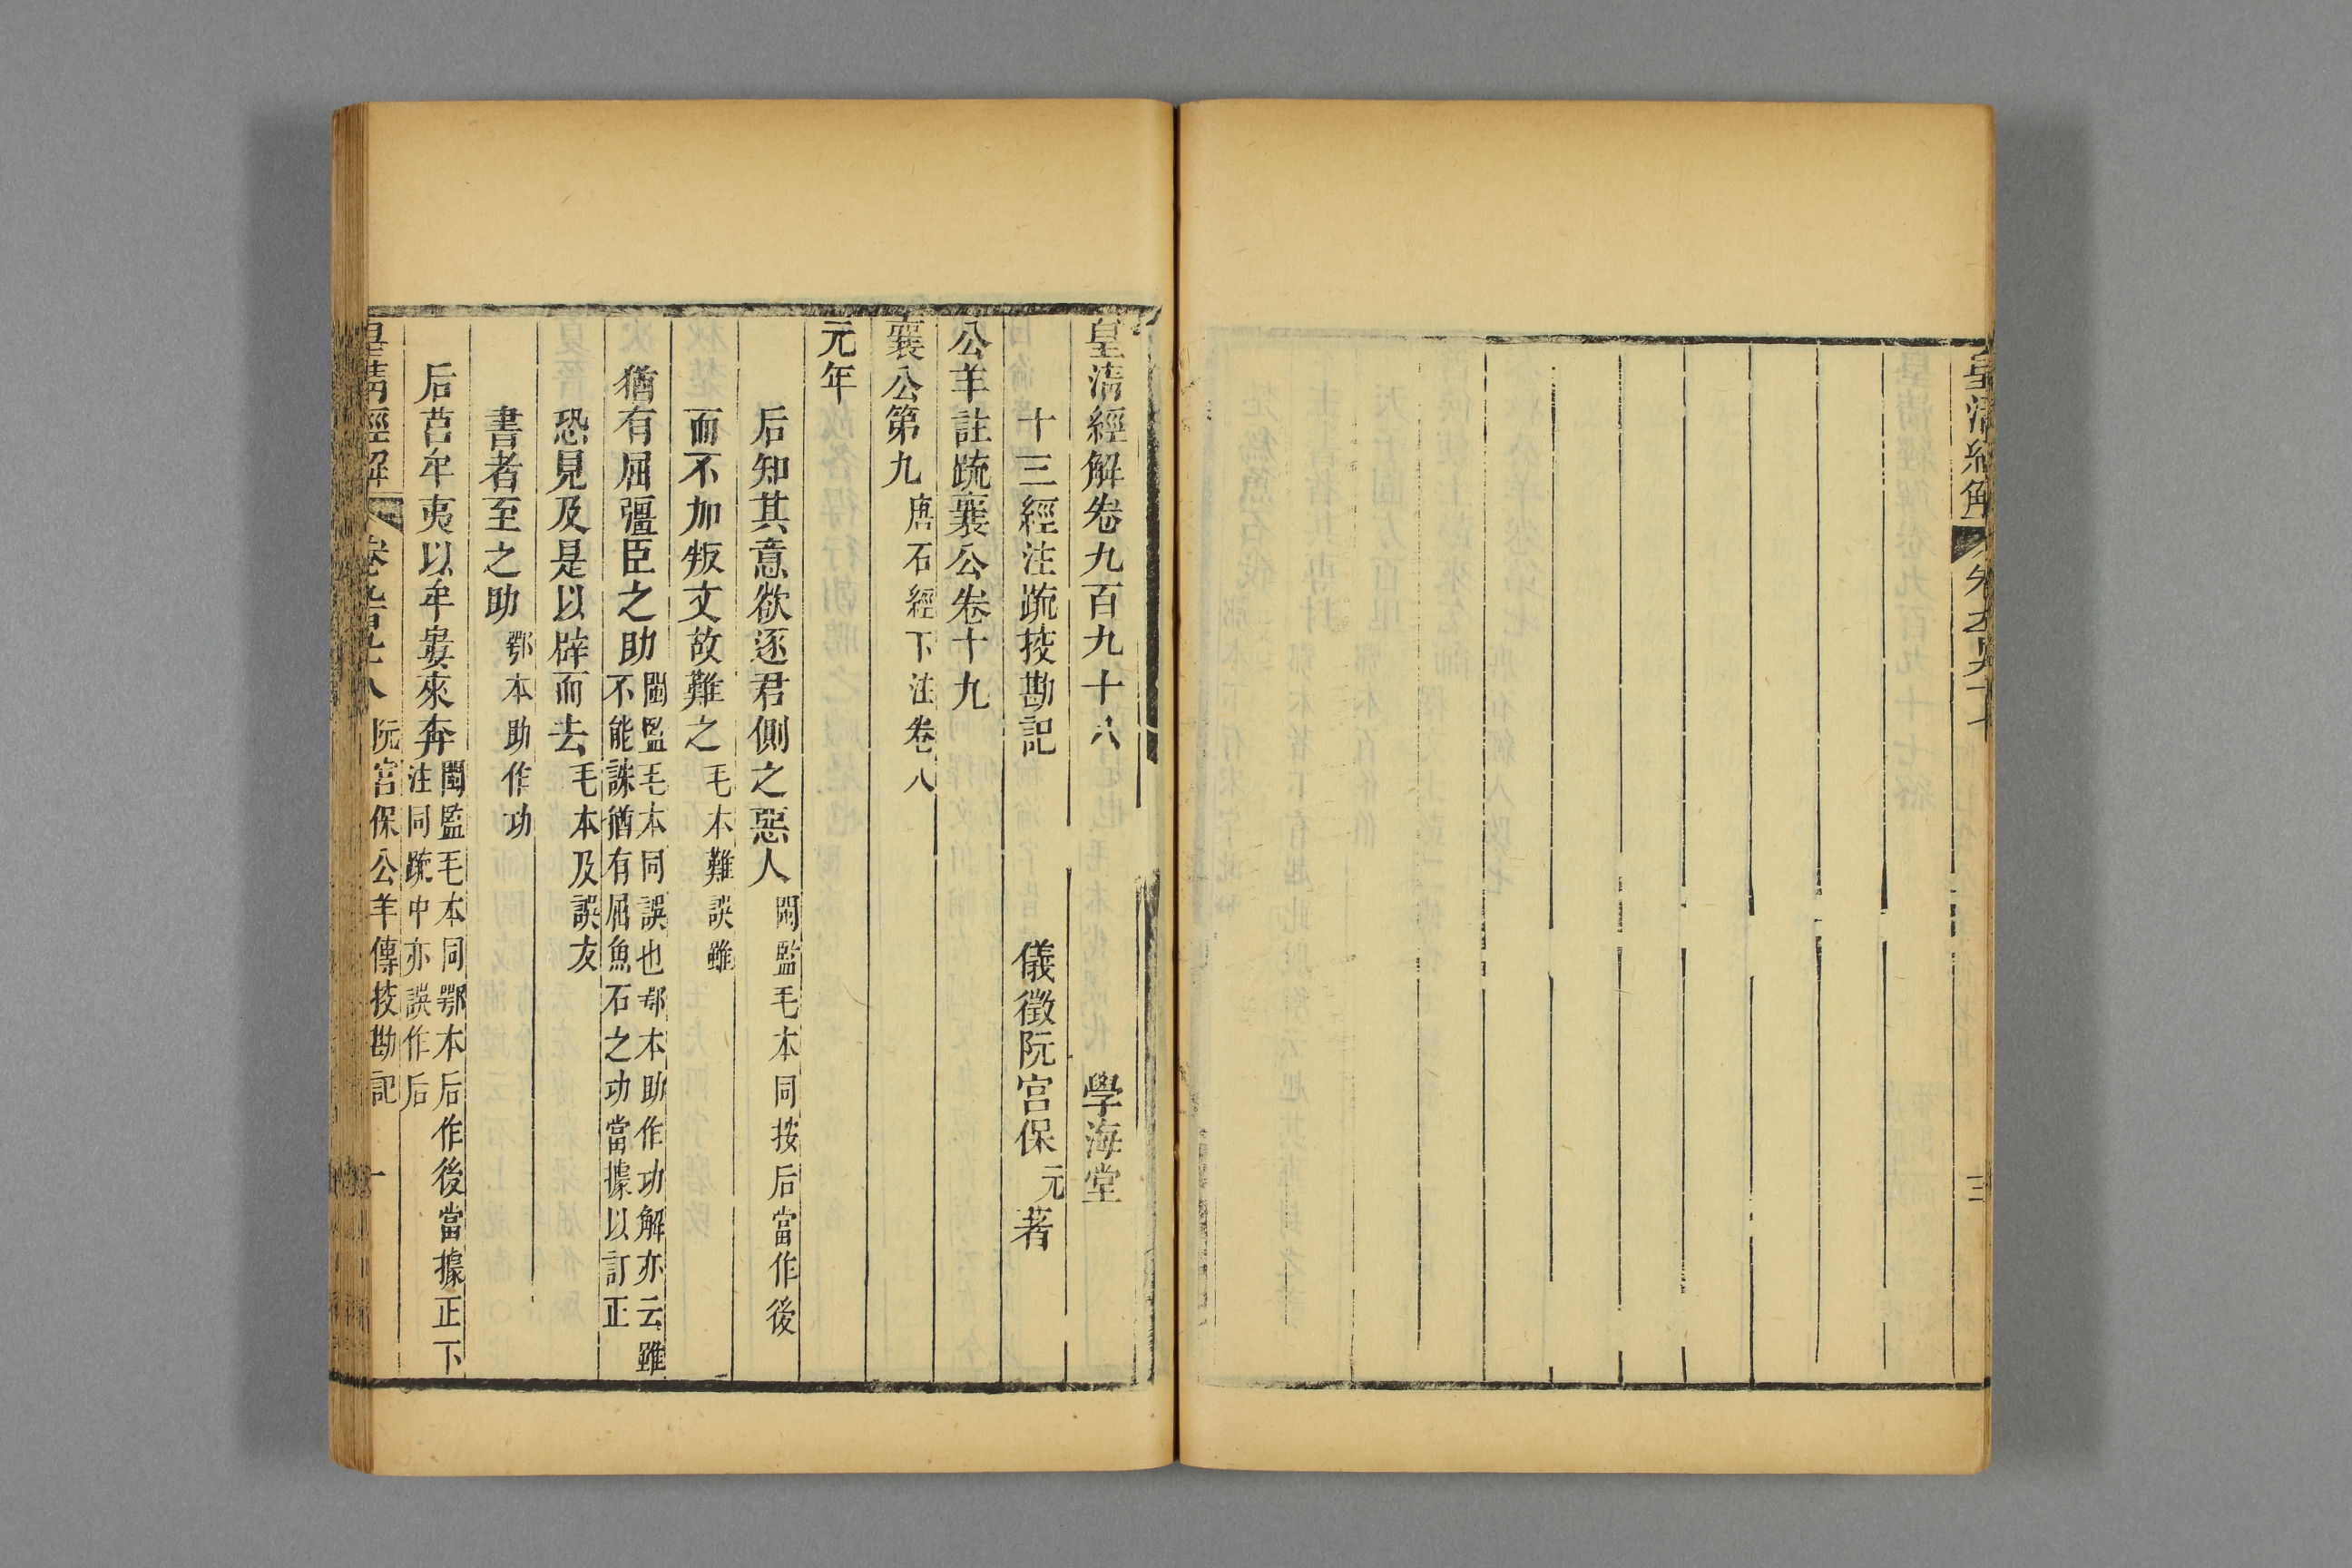 皇清經解 卷九百九十七
三
皇清經解卷九百九十八 學海堂
十三經注疏挍勘記 儀徵阮宮保元著
公羊註疏襄公卷十九
襄公第九 唐石經下注卷八
元年
后知其意欲逐君側之惡人 閩監毛本同按后當作後
而不加叛文故難之 毛本難誤雖
猶有屈彊臣之助 閩監毛本同誤也鄂本助作功解亦云雖
不能誅猶有屈魚石之功當據以訂正
恐見及是以辟而去 毛本及誤友
書者至之助 鄂本助作功
后莒牟夷以牟婁來奔 閩監毛本同鄂本后作後當據正下
注同疏中亦誤作后
皇清經解 卷九百九十八 阮宮保公羊傳挍勘記 一